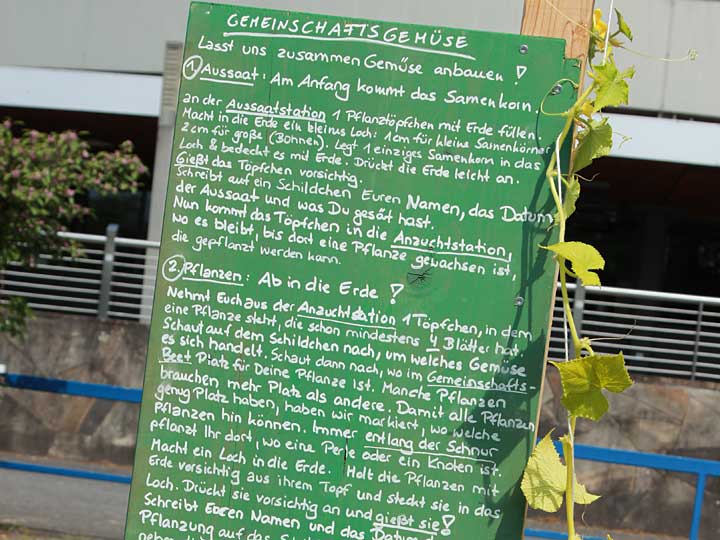 GEMEINSCHAFTSGEMÜSE
Lasst uns zusammen Gemüse anbauen !
1 Aussaat: Am Anfang kommt das Samenkorn.
an der Aussaatstation 1 Pflanztöpfchen mit Erde füllen.
Macht in die Erde ein kleines Loch: 1cm für kleine Samenkörner
2cm für große (Bohnen). Legt 1 einziges Samenkorn in das
Loch & bedeckt es mit Erde. Drückt die Erde leicht an.
Gießt das Töpfchen vorsichtig.
Schreibt auf ein Schildchen Euren Namen, das Datum
der Aussaat und was Du gesät hast.
Nun kommt das Töpfchen in die Anzuchtstation,
wo es bleibt, bis dort eine Pflanze gewachsen ist,
die gepflanzt werden kann.
2. Pflanzen: Ab in die Erde !
Nehmt Euch aus der Anzuchtstation 1 Töpfchen, in dem
eine Pflanze steht, die schon mindestens 4 Blätter hat.
Schaut auf dem Schildchen nach, um welches Gemüse
es sich handelt. Schaut dann nach, wo im Gemeinschafts-
Beet Platz für Deine Pflanze ist. Manche Pflanzen
brauchen mehr Platz als andere. Damit alle Pflanzen
genug Platz haben, haben wir markiert, wo welche
Pflanzen hin können. Immer entlang der Schnur
pflanzt Ihr dort, wo eine Perle oder ein Knoten ist.
Macht ein Loch in die Erde. Holt die Pflanzen mit
Erde vorsichtig aus ihrem Topf und steckt sie in das
Loch. Drückt sie vorsichtig an und gießt sie!
Schreibt Euren Namen und das Datum der
Pflanzung auf das